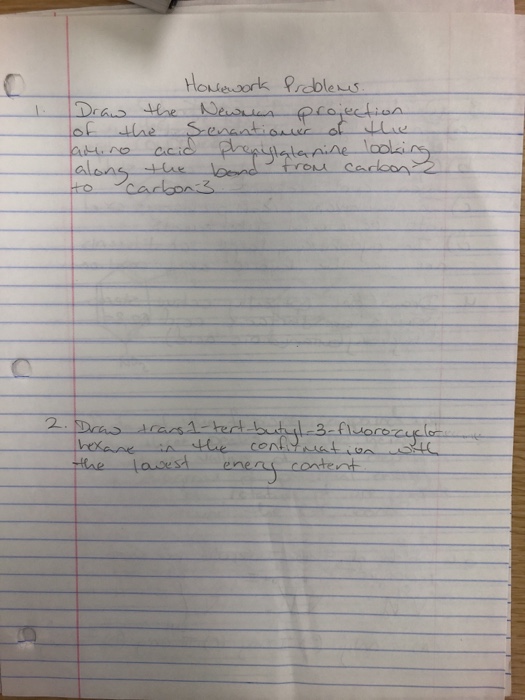 Homework Problems
1. Draw the Newman projection
of the S-enantiomer of the
amino acid phenylalanine looking
along the bond from carbon-2
to carbon-3
2. Draw trans 1-tert-butyl-3-fluoro-cyclo-
hexane in the confirmation with
the lowest energy content